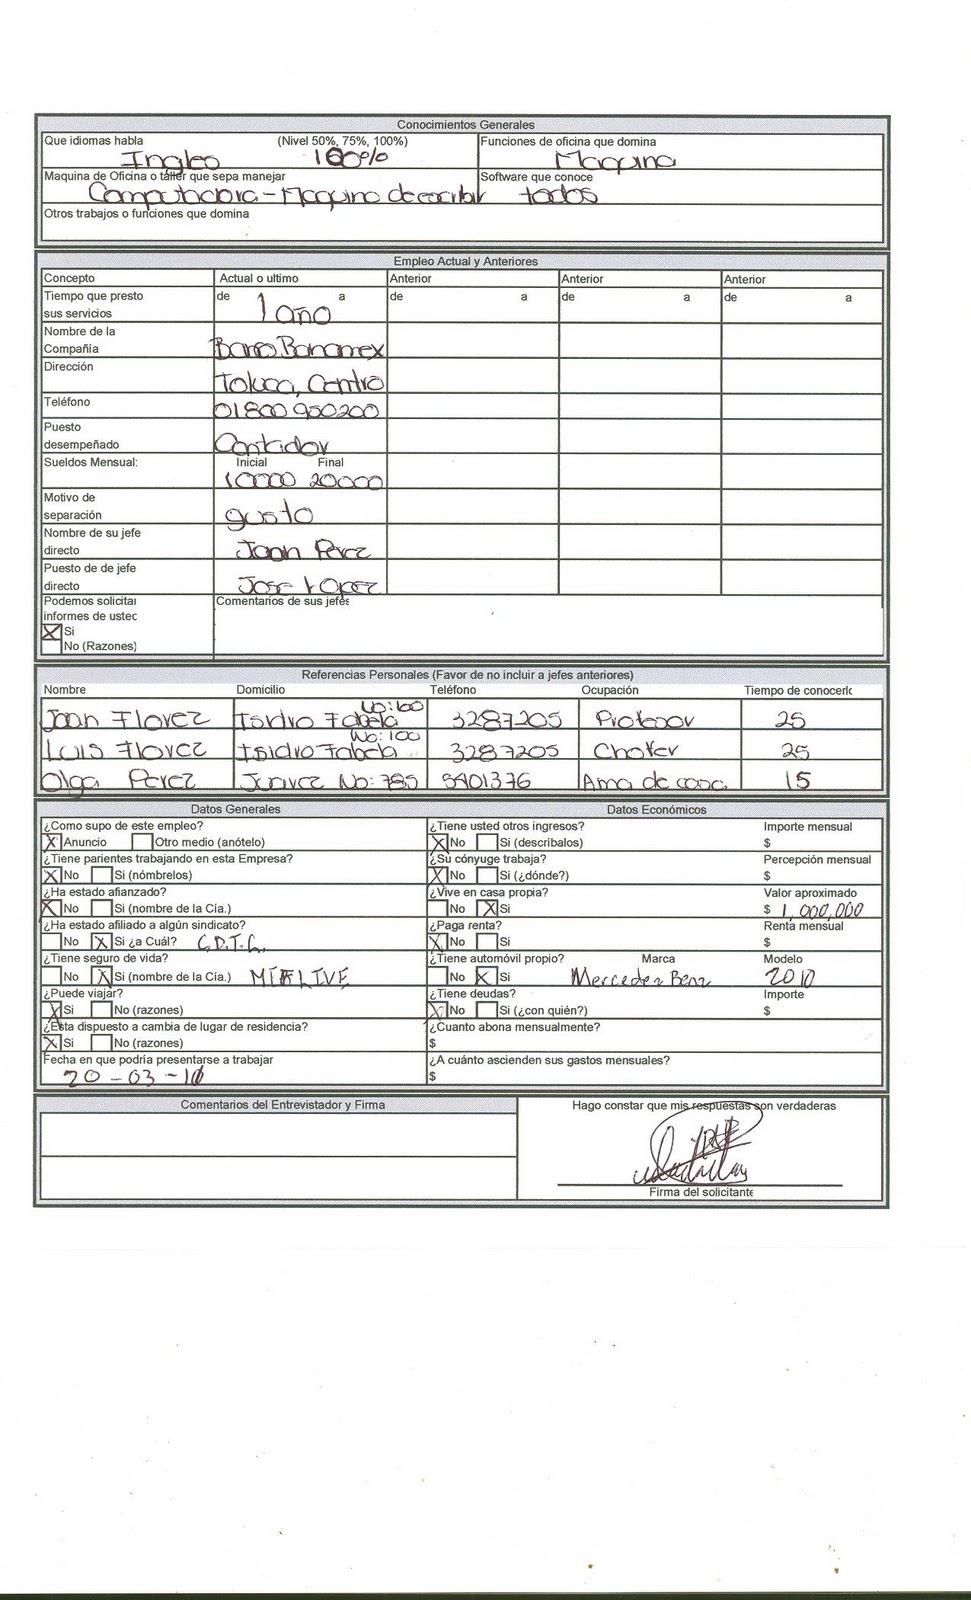 Conocimientos Generales
Que idiomas habla (Nivel 50%, 75%, 100%) Funciones de oficina que domina
Ingles 100% Maquina
Maquina de Oficina o taller que sepa manejar Software que conoce
Computadora - Maquina de escribir todos
Otros trabajos o funciones que domina
Empleo Actual y Anteriores
Concepto Actual o ultimo Anterior Anterior Anterior
Tiempo que presto de a de a de a de a
sus servicios 1 año
Nombre de la
Compañía Banco Banamex
Dirección
Toluca, Centro
Teléfono
01800 950200
Puesto
desempeñado Contador
Sueldos Mensual: Inicial Final
10000 20000
Motivo de
separación gusto
Nombre de su jefe
directo Juan Perez
Puesto de de jefe
directo Jose Lopez
Podemos solicitar Comentarios de sus jefes
informes de usted
X Si
No (Razones)
Referencias Personales (Favor de no incluir a jefes anteriores)
Nombre Domicilio Teléfono Ocupación Tiempo de conocerlo
Juan Florez Isidro Fabela No:100 3287205 Profesor 25
Luis Florez Isidro Fabela No:100 3287205 Chofer 25
Olga Perez Juarez No: 785 5401376 Ama de casa 15
Datos Generales Datos Económicos
¿Como supo de este empleo? ¿Tiene usted otros ingresos? Importe mensual
X Anuncio Otro medio (anótelo) X No Si (describalos) $
¿Tiene parientes trabajando en esta Empresa? ¿Su cónyuge trabaja? Percepción mensual
X No Si (nómbrelos) X No Si (¿dónde?) $
¿Ha estado afianzado? ¿Vive en casa propia? Valor aproximado
X No Si (nombre de la Cía.) No X Si $ 1,000,000
¿Ha estado afiliado a algún sindicato? ¿Paga renta? Renta mensual
No X Si ¿a Cuál? C.D.T.C. X No Si $
¿Tiene seguro de vida? ¿Tiene automóvil propio? Marca Modelo
No X Si (nombre de la Cía.) METLIVE No X Si Mercedez Benz 2010
¿Puede viajar? ¿Tiene deudas? Importe
X Si No (razones) X No Si (¿con quién?) $
¿Esta dispuesto a cambia de lugar de residencia? ¿Cuanto abona mensualmente?
X Si No (razones) $
Fecha en que podría presentarse a trabajar ¿A cuánto ascienden sus gastos mensuales?
20-03-11 $
Comentarios del Entrevistador y Firma Hago constar que mis respuestas son verdaderas
Firma del solicitante